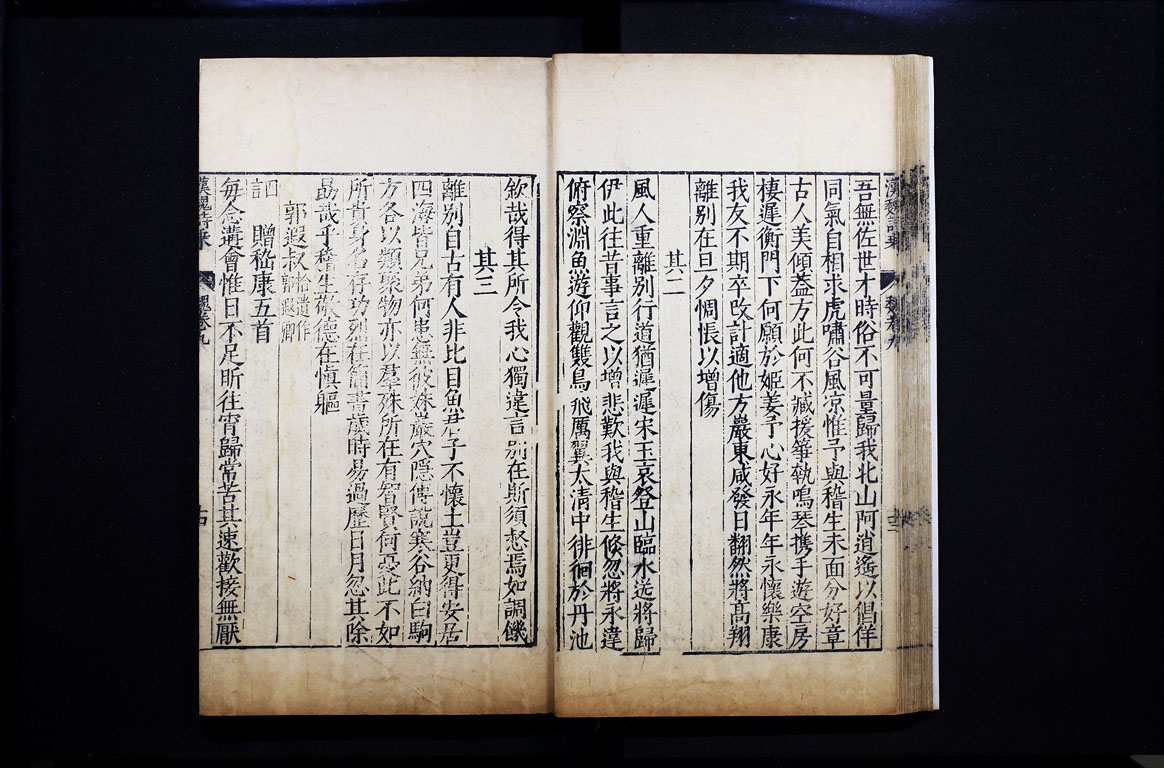 吾無佐世才時俗不可量歸我北山阿逍遙以倡佯
同氣自相求虎嘯谷風凉惟予與嵇生未面分好章
古人美傾葢方此何不臧援箏執鳴琴携手遊空房
棲遲衡門下何願於姬姜予心好永年年永懷樂康
我友不期卒改計適他方嚴東咸發日翻然將高翔
離别在旦夕惆悵以增傷
其二
風人重離别行道猶遲遲宋玉哀登山臨水送將歸
伊此往昔事言之以增悲歎我與嵇生倏忽將永違
俯察淵魚遊仰觀雙鳥飛厲翼太淸中徘徊於丹池
欽哉得其所令我心獨違言别在斯須惄焉如調饑
其三
離别自古有人非比目魚君子不懷土豈更得安居
四海皆兄弟何患無彼姝巖穴隱傅說寒谷納白駒
方各以類聚物亦以羣殊所在有智賢何憂此不如
所貴身名存功烈在簡書歲時易過歷日月忽其除
勗哉乎嵇生敬德在愼軀
郭遐叔
贈嵇康五首
每念遘會惟日不足昕往宵歸常苦其速歡接無厭
漢魏詩乘
魏卷九